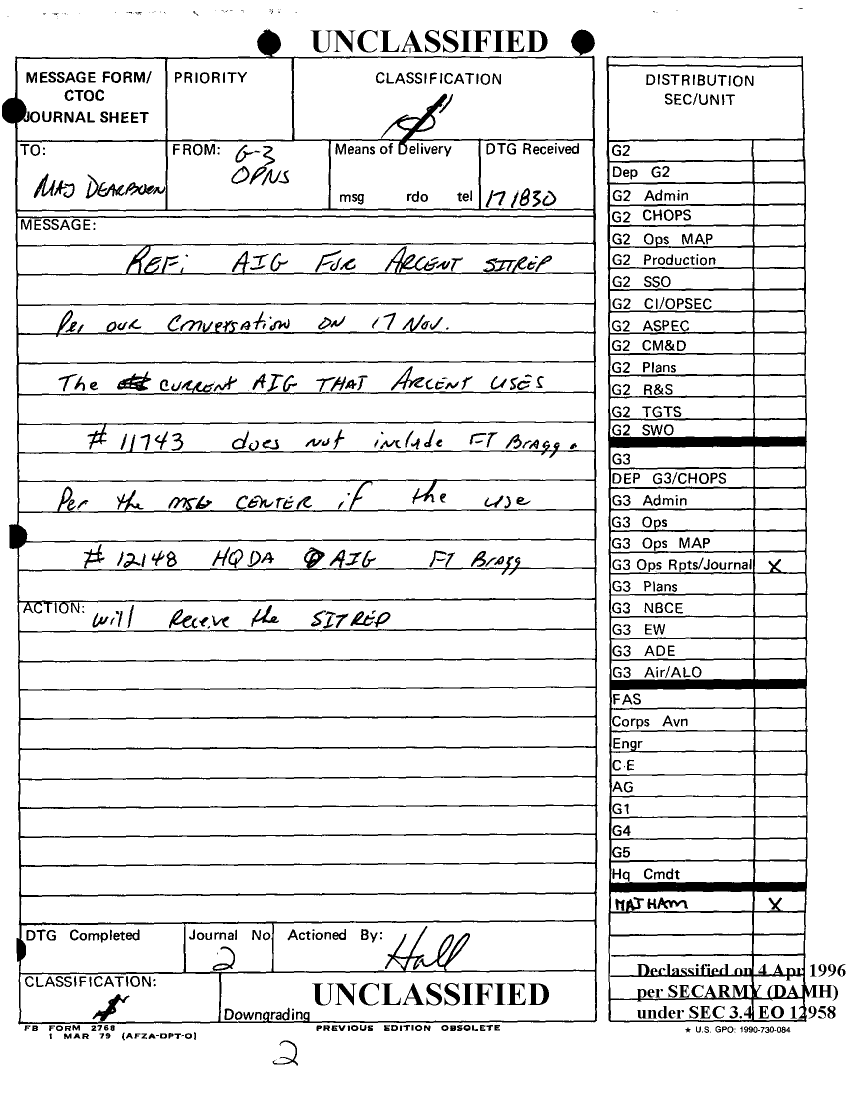 UNCLASSIFIED
MESSAGE FORM/
CTOC
JOURNAL SHEET
PRIORITY
CLASSIFICATION
TO:
MAJ DEARBORN
FROM: G-3
OPNS
Means of Delivery
msg rdo tel
DTG Received
171830
MESSAGE:
REF: AIG FOR ARCENT SITREP
Per our Conversation ON 17 Nov.
The CURRENT AIG THAT ARCENT USES
# 11743 does not include FT Bragg.
Per the MSG CENTER if the use
# 12148 HQDA AIG FT Bragg
ACTION: will Receve the SITREP
DTG Completed
Journal No
2
Actioned By:
Hall
CLASSIFICATION:
UNCLASSIFIED
Downgrading
FB FORM 2768
1 MAR 79 (AFZA-DPT-O)
PREVIOUS EDITION OBSOLETE
2
DISTRIBUTION
SEC/UNIT
G2
Dep G2
G2 Admin
G2 CHOPS
G2 Ops MAP
G2 Production
G2 SSO
G2 CI/OPSEC
G2 ASPEC
G2 CM&D
G2 Plans
G2 R&S
G2 TGTS
G2 SWO
G3
DEP G3/CHOPS
G3 Admin
G3 Ops
G3 Ops MAP
G3 Ops Rpts/Journal X
G3 Plans
G3 NBCE
G3 EW
G3 ADE
G3 Air/ALO
FAS
Corps Avn
Engr
CE
AG
G1
G4
G5
Hq Cmdt
MAJ HAM X
Declassified on 4 Apr 1996
per SECARMY (DAMH)
under SEC 3.4 EO 12958
★ U.S. GPO: 1990-730-084